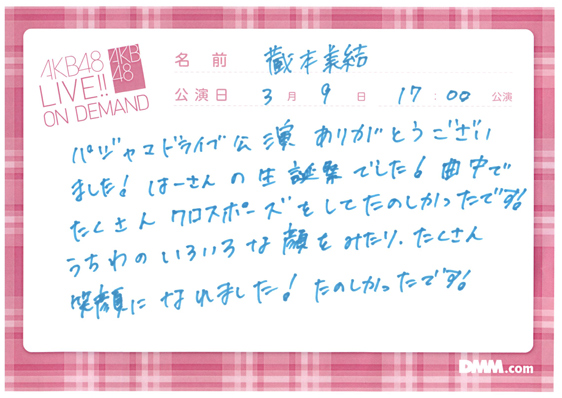 AKB48
LIVE!!
ON DEMAND
AKB
48
名前 蔵本美結
公演日 3月9日 17:00 公演
パジャマドライブ公演 ありがとうござい
ました! はーさんの生誕祭でした! 曲中で
たくさん クロスポーズをしてたのしかったです!
うちわのいろいろな顔をみたり、たくさん
笑顔になれました! たのしかったです!
DMM.com